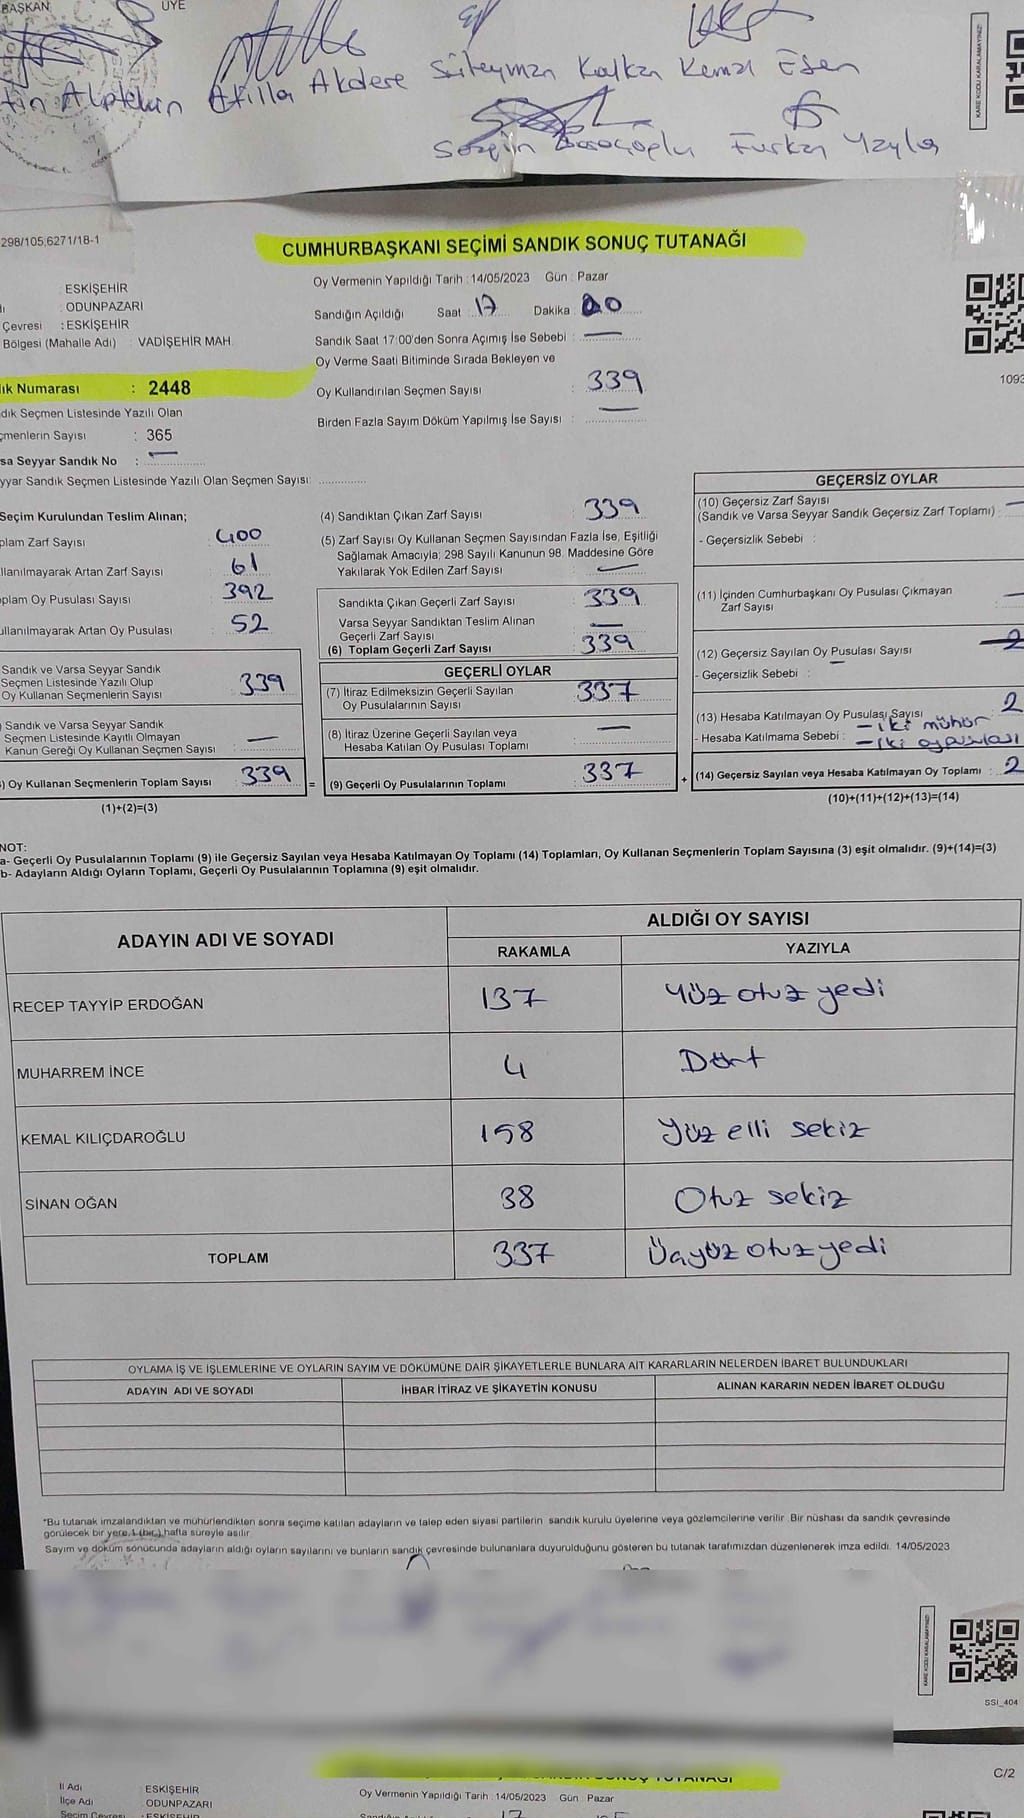 BAŞKAN ÜYE
Atilla Akdere Süleyman Kalkan Kemal Esen
Furkan Yayla
KARE KODU KARALAMAYINIZ!
298/105,6271/18-1
CUMHURBAŞKANI SEÇİMİ SANDIK SONUÇ TUTANAĞI
: ESKİŞEHİR
: ODUNPAZARI
Çevresi : ESKİŞEHİR
Bölgesi (Mahalle Adı) : VADİŞEHİR MAH.
Oy Vermenin Yapıldığı Tarih : 14/05/2023 Gün : Pazar
Sandığın Açıldığı Saat : 17 Dakika : 20
Sandık Saat 17:00'den Sonra Açımış İse Sebebi : —
Oy Verme Saati Bitiminde Sırada Bekleyen ve
Oy Kullandırılan Seçmen Sayısı : 339
Birden Fazla Sayım Döküm Yapılmış İse Sayısı : —
1093
ık Numarası : 2448
dık Seçmen Listesinde Yazılı Olan
çmenlerin Sayısı : 365
sa Seyyar Sandık No : —
yyar Sandık Seçmen Listesinde Yazılı Olan Seçmen Sayısı:
Seçim Kurulundan Teslim Alınan;
plam Zarf Sayısı 400
llanılmayarak Artan Zarf Sayısı 61
oplam Oy Pusulası Sayısı 392
ullanılmayarak Artan Oy Pusulası 52
Sandık ve Varsa Seyyar Sandık
Seçmen Listesinde Yazılı Olup
Oy Kullanan Seçmenlerin Sayısı 339
) Sandık ve Varsa Seyyar Sandık
Seçmen Listesinde Kayıtlı Olmayan
Kanun Gereği Oy Kullanan Seçmen Sayısı : —
) Oy Kullanan Seçmenlerin Toplam Sayısı 339
(1)+(2)=(3)
(4) Sandıktan Çıkan Zarf Sayısı 339
(5) Zarf Sayısı Oy Kullanan Seçmen Sayısından Fazla İse, Eşitliği
Sağlamak Amacıyla; 298 Sayılı Kanunun 98. Maddesine Göre
Yakılarak Yok Edilen Zarf Sayısı : —
Sandıkta Çıkan Geçerli Zarf Sayısı : 339
Varsa Seyyar Sandıktan Teslim Alınan
Geçerli Zarf Sayısı : —
(6) Toplam Geçerli Zarf Sayısı : 339
GEÇERLİ OYLAR
(7) İtiraz Edilmeksizin Geçerli Sayılan
Oy Pusulalarının Sayısı : 337
(8) İtiraz Üzerine Geçerli Sayılan veya
Hesaba Katılan Oy Pusulası Toplamı : —
= (9) Geçerli Oy Pusulalarının Toplamı : 337
GEÇERSİZ OYLAR
(10) Geçersiz Zarf Sayısı
(Sandık ve Varsa Seyyar Sandık Geçersiz Zarf Toplamı) : —
- Geçersizlik Sebebi :
(11) İçinden Cumhurbaşkanı Oy Pusulası Çıkmayan
Zarf Sayısı —
(12) Geçersiz Sayılan Oy Pusulası Sayısı
- Geçersizlik Sebebi : —
(13) Hesaba Katılmayan Oy Pusulası Sayısı 2
- Hesaba Katılmama Sebebi : — iki mühür
— iki oy pusulası
+ (14) Geçersiz Sayılan veya Hesaba Katılmayan Oy Toplamı : 2
(10)+(11)+(12)+(13)=(14)
NOT:
a- Geçerli Oy Pusulalarının Toplamı (9) ile Geçersiz Sayılan veya Hesaba Katılmayan Oy Toplamı (14) Toplamları, Oy Kullanan Seçmenlerin Toplam Sayısına (3) eşit olmalıdır. (9)+(14)=(3)
b- Adayların Aldığı Oyların Toplamı, Geçerli Oy Pusulalarının Toplamına (9) eşit olmalıdır.
ADAYIN ADI VE SOYADI ALDIĞI OY SAYISI
RAKAMLA YAZIYLA
RECEP TAYYİP ERDOĞAN 137 Yüz otuz yedi
MUHARREM İNCE 4 Dört
KEMAL KILIÇDAROĞLU 158 Yüz elli sekiz
SİNAN OĞAN 38 Otuz sekiz
TOPLAM 337 Üçyüz otuz yedi
OYLAMA İŞ VE İŞLEMLERİNE VE OYLARIN SAYIM VE DÖKÜMÜNE DAİR ŞİKAYETLERLE BUNLARA AİT KARARLARIN NELERDEN İBARET BULUNDUKLARI
ADAYIN ADI VE SOYADI İHBAR İTİRAZ VE ŞİKAYETİN KONUSU ALINAN KARARIN NEDEN İBARET OLDUĞU
*Bu tutanak imzalandıktan ve mühürlendikten sonra seçime katılan adayların ve talep eden siyasi partilerin sandık kurulu üyelerine veya gözlemcilerine verilir. Bir nüshası da sandık çevresinde
görülecek bir yere 1 (bir) hafta süreyle asılır.
Sayım ve döküm sonucunda adayların aldığı oyların sayılarını ve bunların sandık çevresinde bulunanlara duyurulduğunu gösteren bu tutanak tarafımızdan düzenlenerek imza edildi. 14/05/2023
KARE KODU KARALAMAYINIZ!
SSI_404
C/2
SONUÇ TUTANAĞI
İl Adı : ESKİŞEHİR
İlçe Adı : ODUNPAZARI
Seçim Çevresi : ESKİŞEHİR
Oy Vermenin Yapıldığı Tarih : 14/05/2023 Gün : Pazar